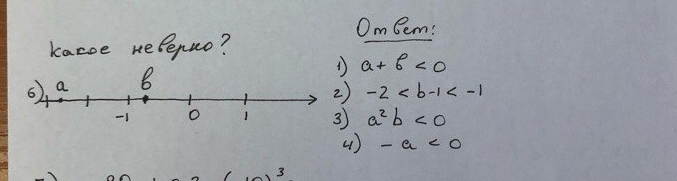 Ответ:
какое неверно?
6) a b
-1 0 1
1) a + b < 0
2) -2 < b-1 < -1
3) a² b < 0
4) - a < 0